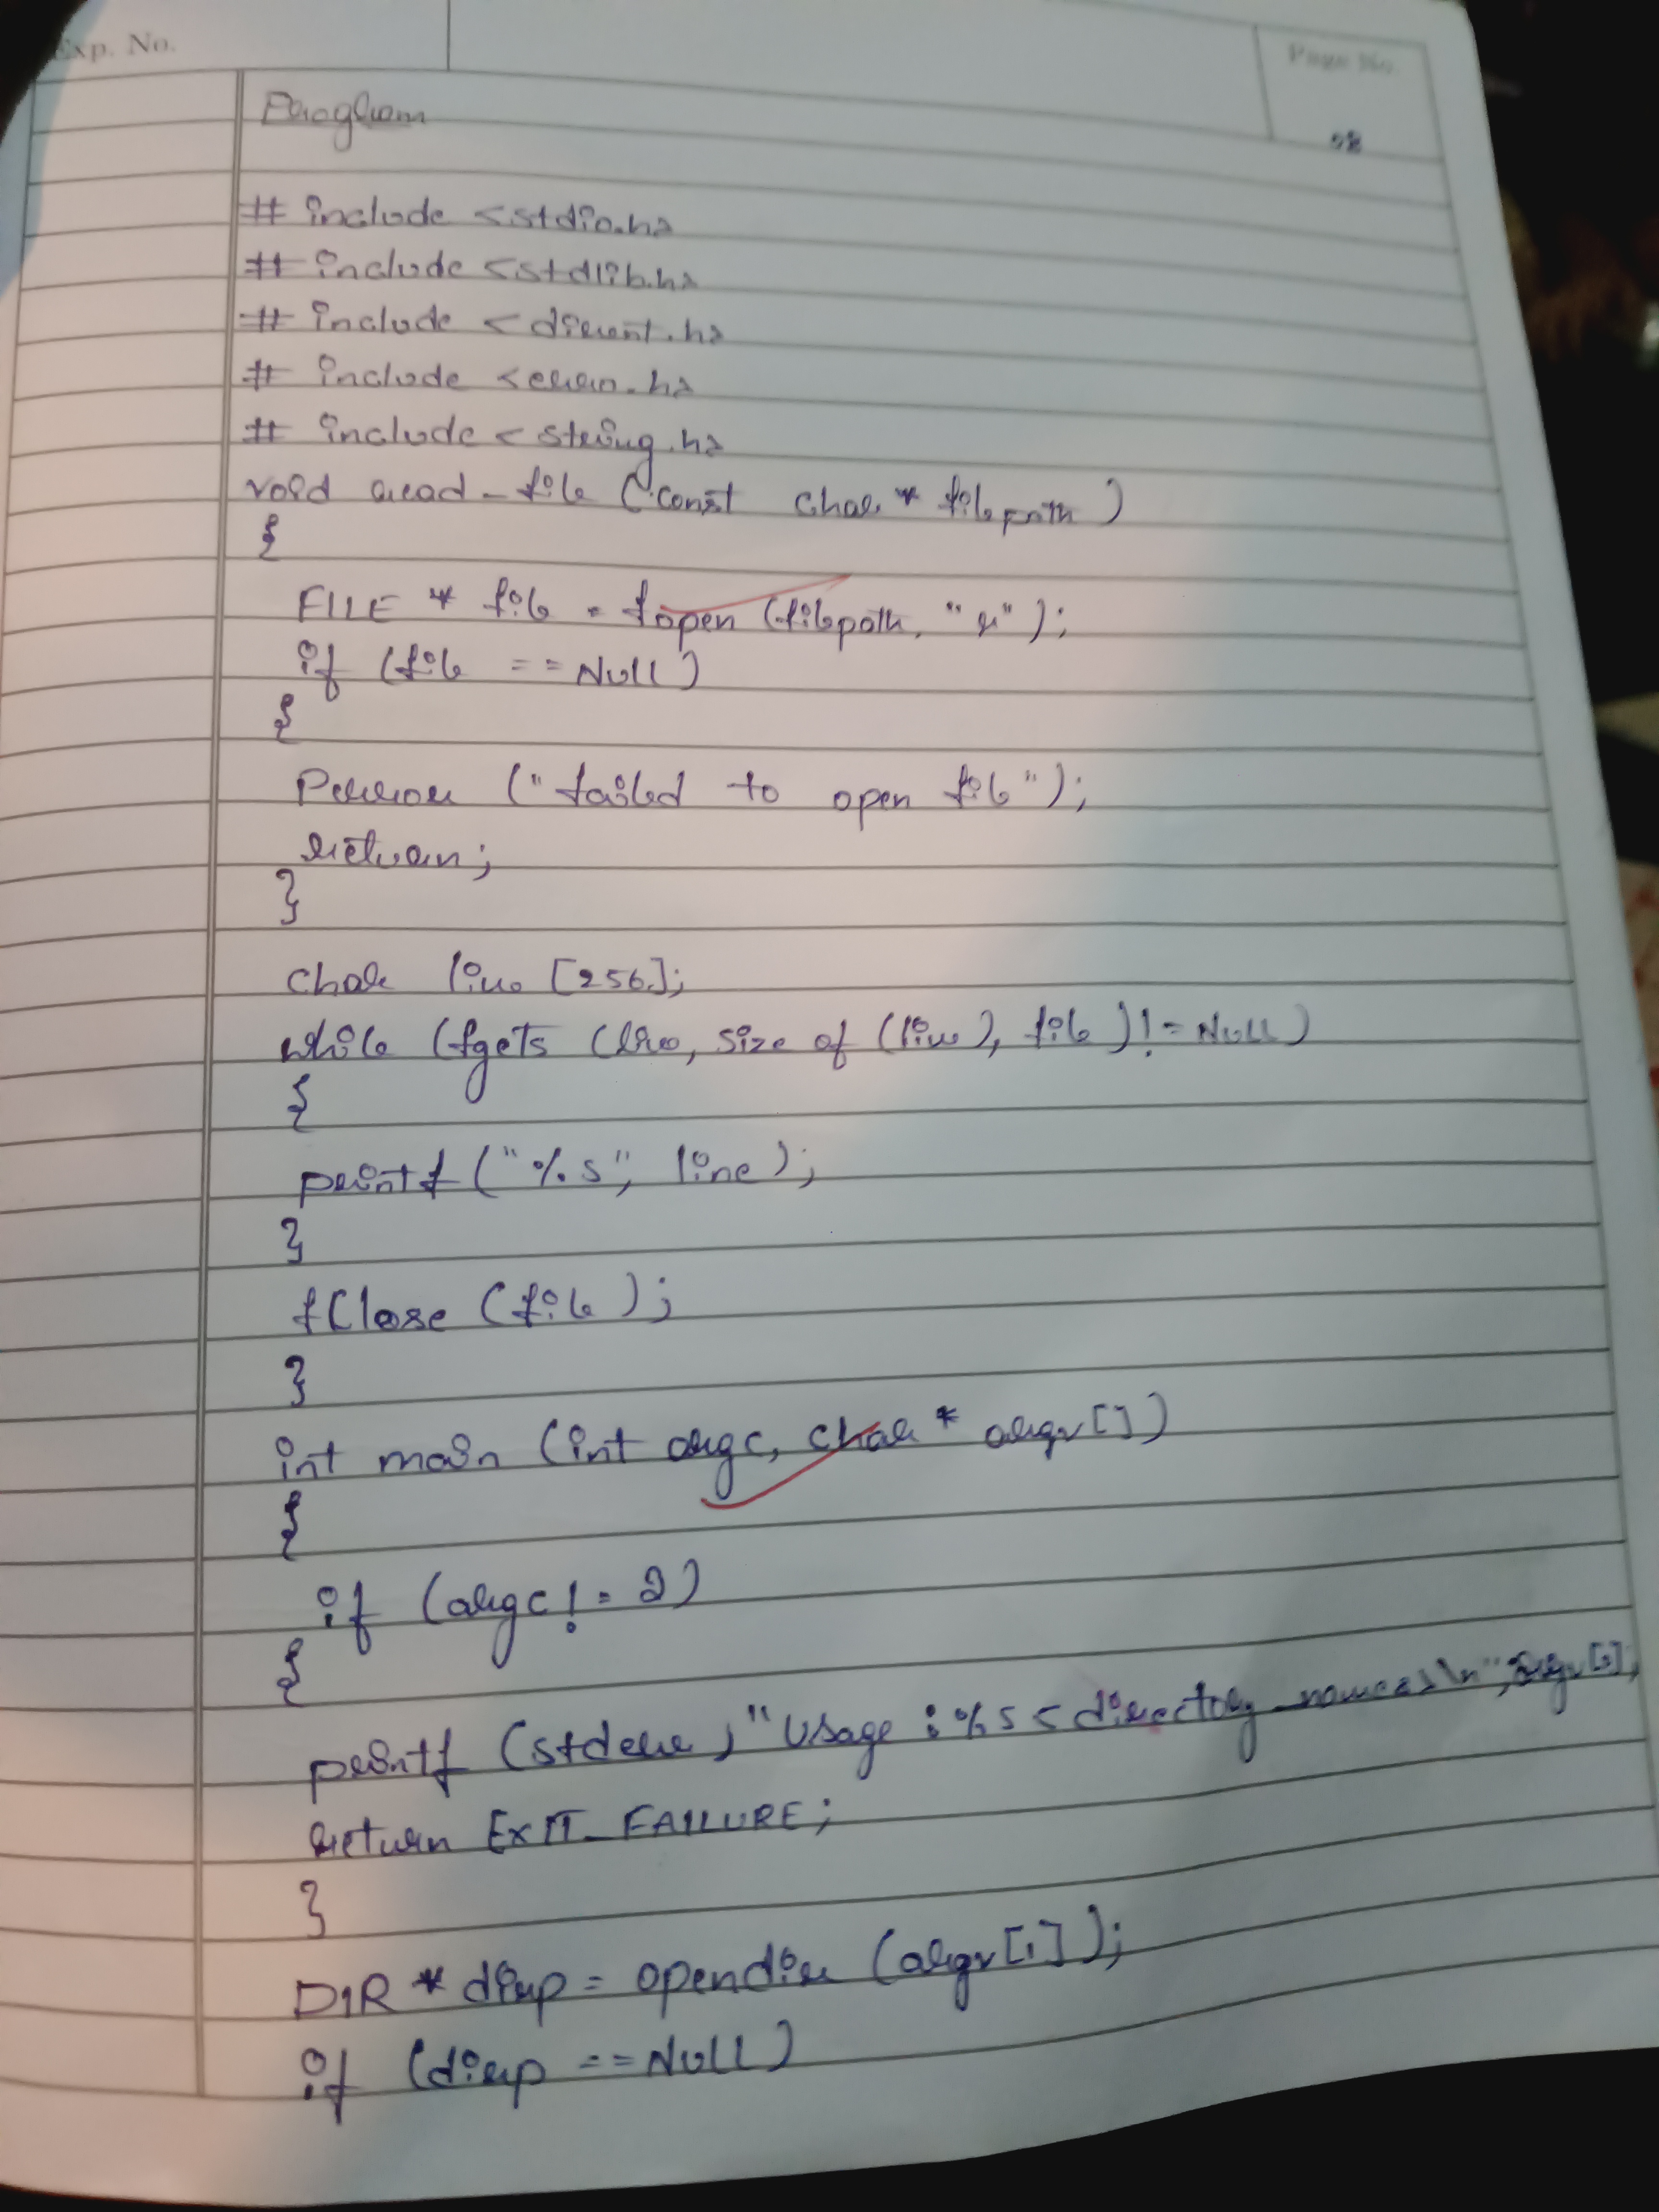 Exp. No.
Page No.
Program
# include <stdio.h>
# include <stdlib.h>
# include <dirent.h>
# include <errno.h>
# include <string.h>
void read_file (const char * filepath)
{
FILE * file = fopen (filepath, "r");
if (file == NULL)
{
Perror ("failed to open file");
return;
}
char line [256];
while (fgets (line, size of (line), file) != NULL)
{
printf ("%s", line);
}
fClose (file);
}
int main (int argc, char * argv [])
{
if (argc != 2)
{
printf (stderr, "Usage : %s < directory names>\n", argv[0],
return EXIT_FAILURE;
}
DIR * dirp = opendir (argv[1]);
if (dirp == NULL)